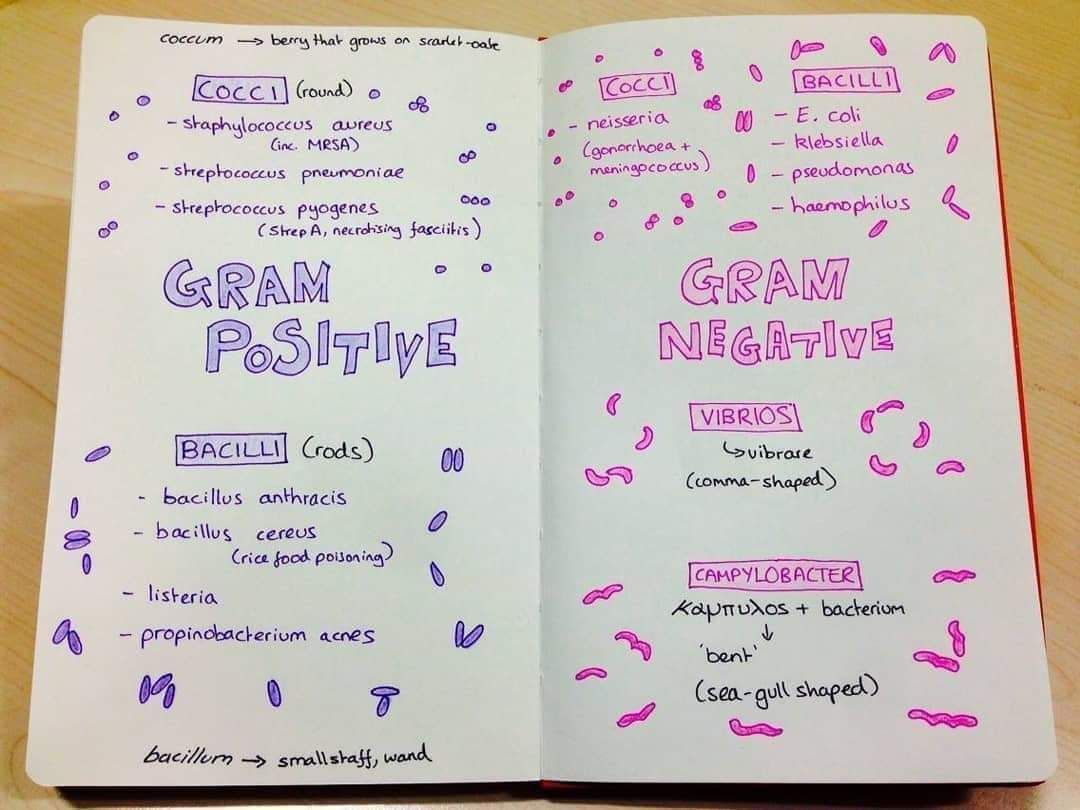 coccum → berry that grows on scarlet-oak
COCCI (round)
- staphylococcus aureus
(inc. MRSA)
- streptococcus pneumoniae
- streptococcus pyogenes
(Strep A, necrotising fasciitis)
GRAM
POSITIVE
BACILLI (rods)
- bacillus anthracis
- bacillus cereus
(rice food poisoning)
- listeria
- propinobacterium acnes
bacillum → small staff, wand
COCCI
- neisseria
(gonorrhoea +
meningococcus)
BACILLI
- E. coli
- klebsiella
- pseudomonas
- haemophilus
GRAM
NEGATIVE
VIBRIOS
↳ vibrare
(comma-shaped)
CAMPYLOBACTER
καμπυλος + bacterium
↓
'bent'
(sea-gull shaped)